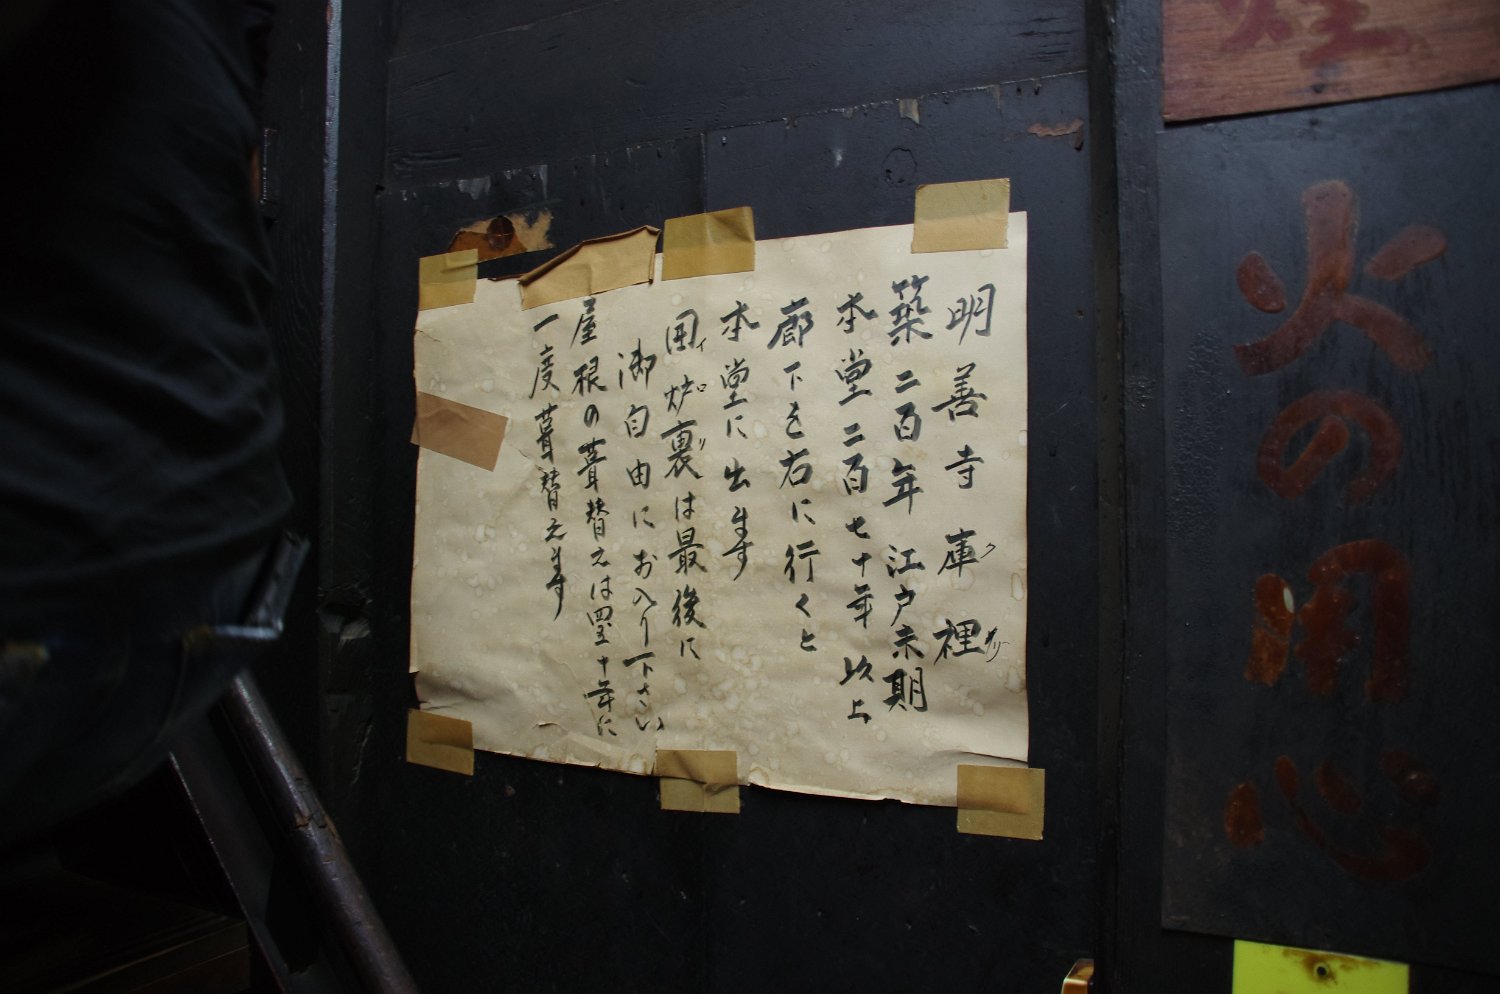 煙
火の用心
明善寺庫裡
クリ
築二百年 江戸末期
本堂二百七十年以上
廊下を右に行くと
本堂に出ます
囲炉裏は最後に
イロリ
御自由にお入り下さい
屋根の葺替えは四五十年に
一度葺替えます